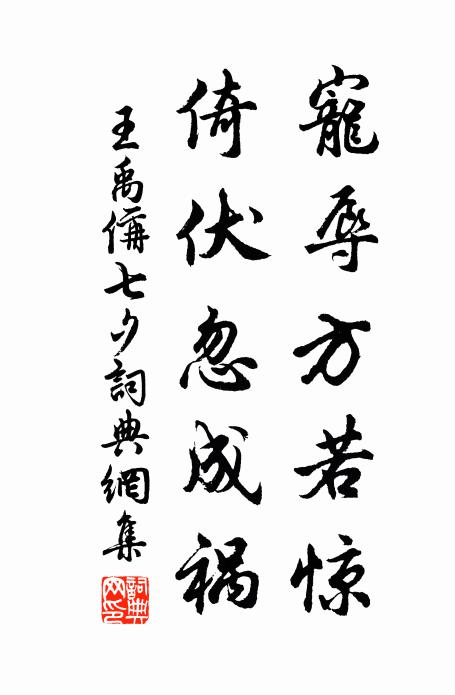 寵辱方若惊
倚伏忽成禍
王禹偁七夕詞典網集
詞典網印